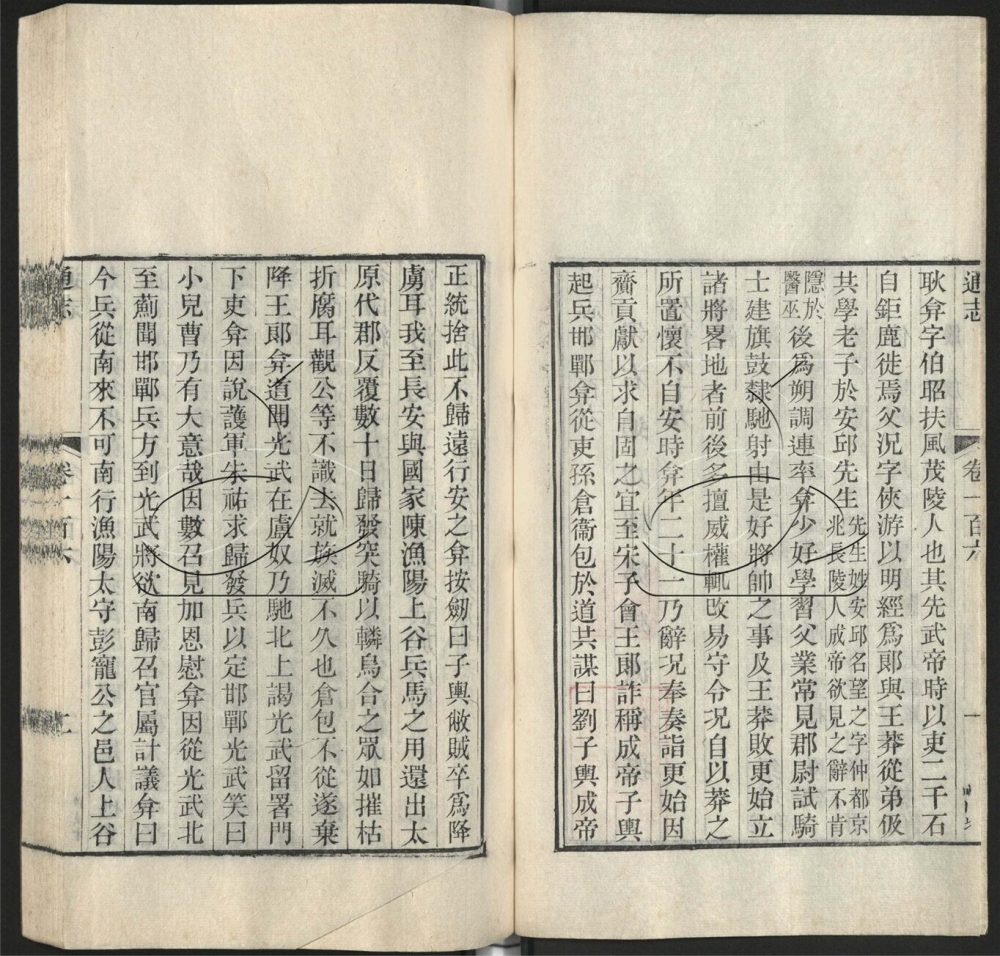 通志
卷一百六
一
耿弇字伯昭扶風茂陵人也其先武帝時以吏二千石
自鉅鹿徙焉父況字俠游以明經爲郎與王莽從弟伋
共學老子於安邱先生先生姓安邱名望之字仲都京兆長陵人成帝欲見之辭不肯
隱於醫巫後爲朔調連率弇少好學習父業常見郡尉試騎
士建旗鼓隸馳射由是好將帥之事及王莽敗更始立
諸將畧地者前後多擅威權輒改易守令況自以莽之
所置懷不自安時弇年二十一乃辭況奉奏詣更始因
齎貢獻以求自固之宜至宋子會王郎詐稱成帝子輿
起兵邯鄲弇從吏孫倉衞包於道共謀曰劉子輿成帝
正統捨此不歸遠行安之弇按劒曰子輿敝賊卒爲降
虜耳我至長安與國家陳漁陽上谷兵馬之用還出太
原代郡反覆數十日歸發突騎以轔烏合之眾如摧枯
折腐耳觀公等不識去就族滅不久也倉包不從遂棄
降王郎弇道聞光武在盧奴乃馳北上謁光武留署門
下吏弇因說護軍朱祐求歸發兵以定邯鄲光武笑曰
小兒曹乃有大意哉因數召見加恩慰弇因從光武北
至薊聞邯鄲兵方到光武將欲南歸召官屬計議弇曰
今兵從南來不可南行漁陽太守彭寵公之邑人上谷
通志
卷一百六
二